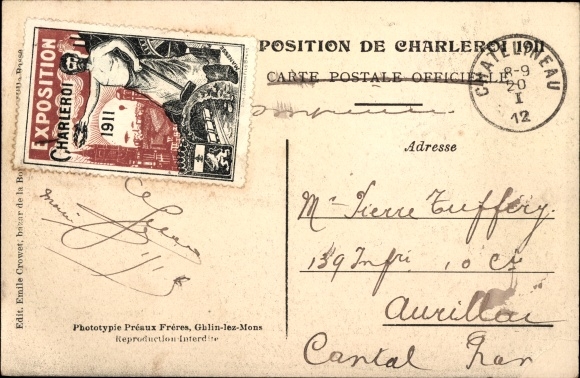 EXPOSITION
CHARLEROI
1911
POSITION DE CHARLEROI 1911
CARTE POSTALE OFFICIELLE
CHATELINEAU
8-9
20
I
12
Adresse
Mr Pierre Tuffery.
139 Infri 10 Cie
Aurillac
Cantal
Edit. Emile Crowet, bazar de la
Phototypie Préaux Frères, Ghlin-lez-Mons
Reproduction Interdite